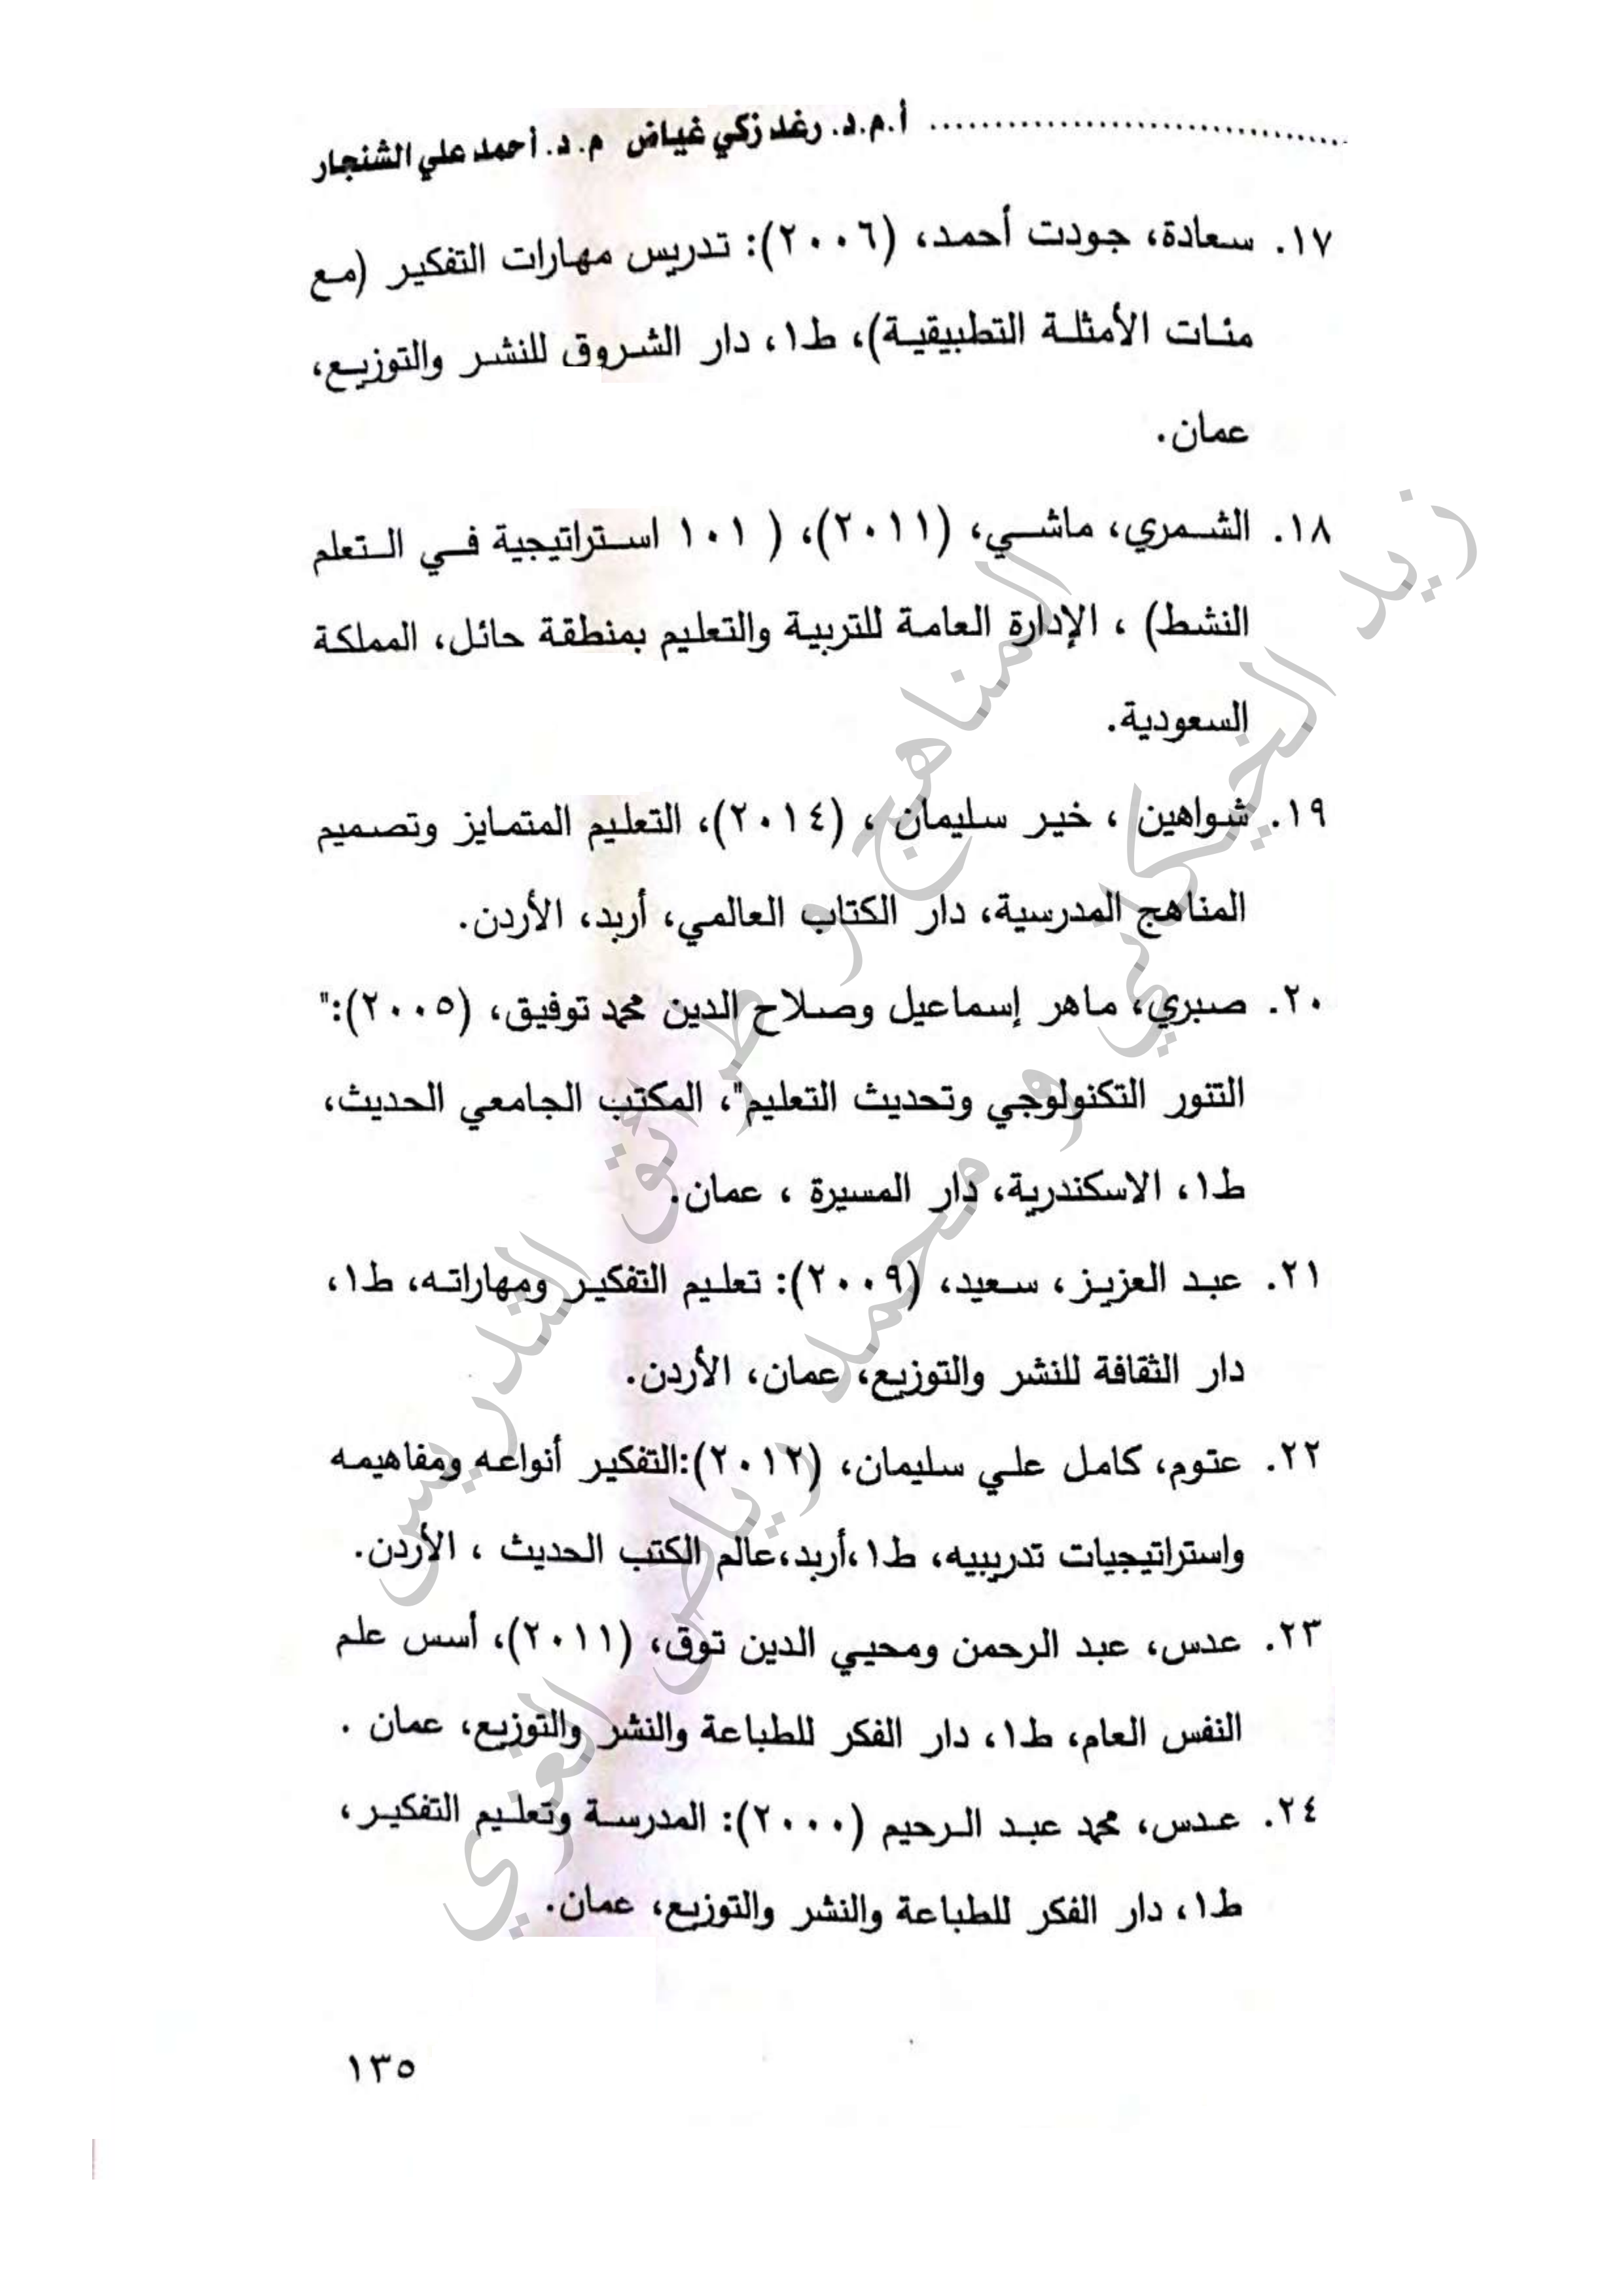 أ.م.د. رغد زكي غياض م. د. أحمد علي الشنجار
١٧. سعادة، جودت أحمد، (٢٠٠٦): تدريس مهارات التفكير (مع
مئات الأمثلة التطبيقية)، ط١، دار الشروق للنشر والتوزيع،
عمان.
١٨. الشمري، ماشي، (٢٠١١)، ( ١٠١ استراتيجية في التعلم
النشط) ، الإدارة العامة للتربية والتعليم بمنطقة حائل، المملكة
السعودية.
١٩. شواهين ، خير سليمان ، (٢٠١٤)، التعليم المتمايز وتصميم
المناهج المدرسية، دار الكتاب العالمي، أربد، الأردن.
٢٠. صبري، ماهر إسماعيل وصلاح الدين محمد توفيق، (٢٠٠٥):"
التنور التكنولوجي وتحديث التعليم"، المكتب الجامعي الحديث،
ط١، الاسكندرية، دار المسيرة ، عمان.
٢١. عبد العزيز، سعيد، (٢٠٠٩): تعليم التفكير ومهاراته، ط١،
دار الثقافة للنشر والتوزيع، عمان، الأردن.
٢٢. عتوم، كامل علي سليمان، (٢٠١٢):التفكير أنواعه ومفاهيمه
واستراتيجيات تدريبيه، ط١،أربد،عالم الكتب الحديث ، الأردن.
٢٣. عدس، عبد الرحمن ومحيي الدين توق، (٢٠١١)، أسس علم
النفس العام، ط١، دار الفكر للطباعة والنشر والتوزيع، عمان .
٢٤. عدس، محمد عبد الرحيم (٢٠٠٠): المدرسة وتعليم التفكير،
ط١، دار الفكر للطباعة والنشر والتوزيع، عمان.
١٣٥
المناهج و طرائق التدريس
زيد الخيكاني و محمد رياض الغزي